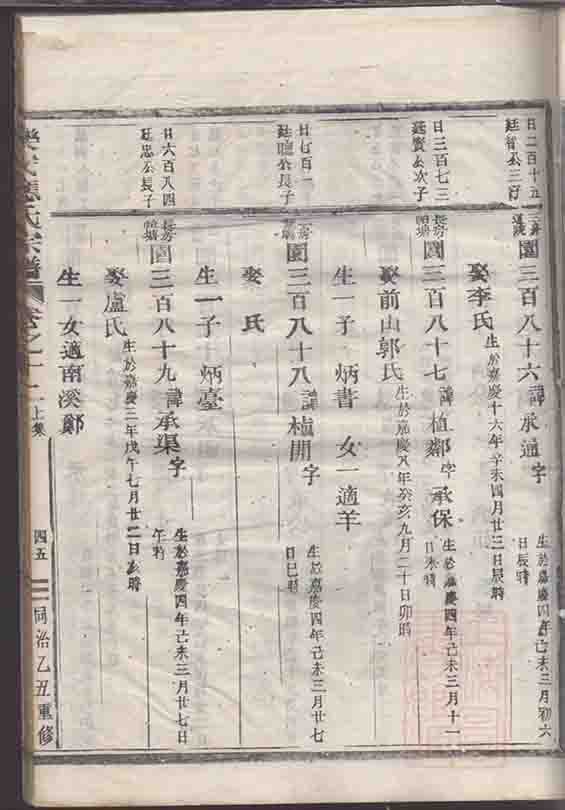 日二百十五
廷智公三子
園三百八十六諱承通字
生於嘉慶四年己未三月初六
日辰時
娶李氏
生於嘉慶十六年辛未四月廿三日辰時
日三百七三
廷賢公次子
長房
園三百八十七諱植鄰字承保
生於嘉慶四年己未三月十一
日未時
娶前山郭氏
生於嘉慶八年癸亥九月二十日卯時
生一子炳書 女一適羊
日七百二
廷聰公長子
園三百八十八諱植開字
生於嘉慶四年己未三月廿七
日巳時
娶 氏
生一子炳臺
日六百八四
廷忠公長子
長房
園三百八十九諱承渠字
生於嘉慶四年己未三月廿七日
午時
娶盧氏
生於嘉慶三年戊午七月廿二日亥時
生一女適南溪鄭
氏宗譜 卷之十二上集 四五 同治乙丑重修